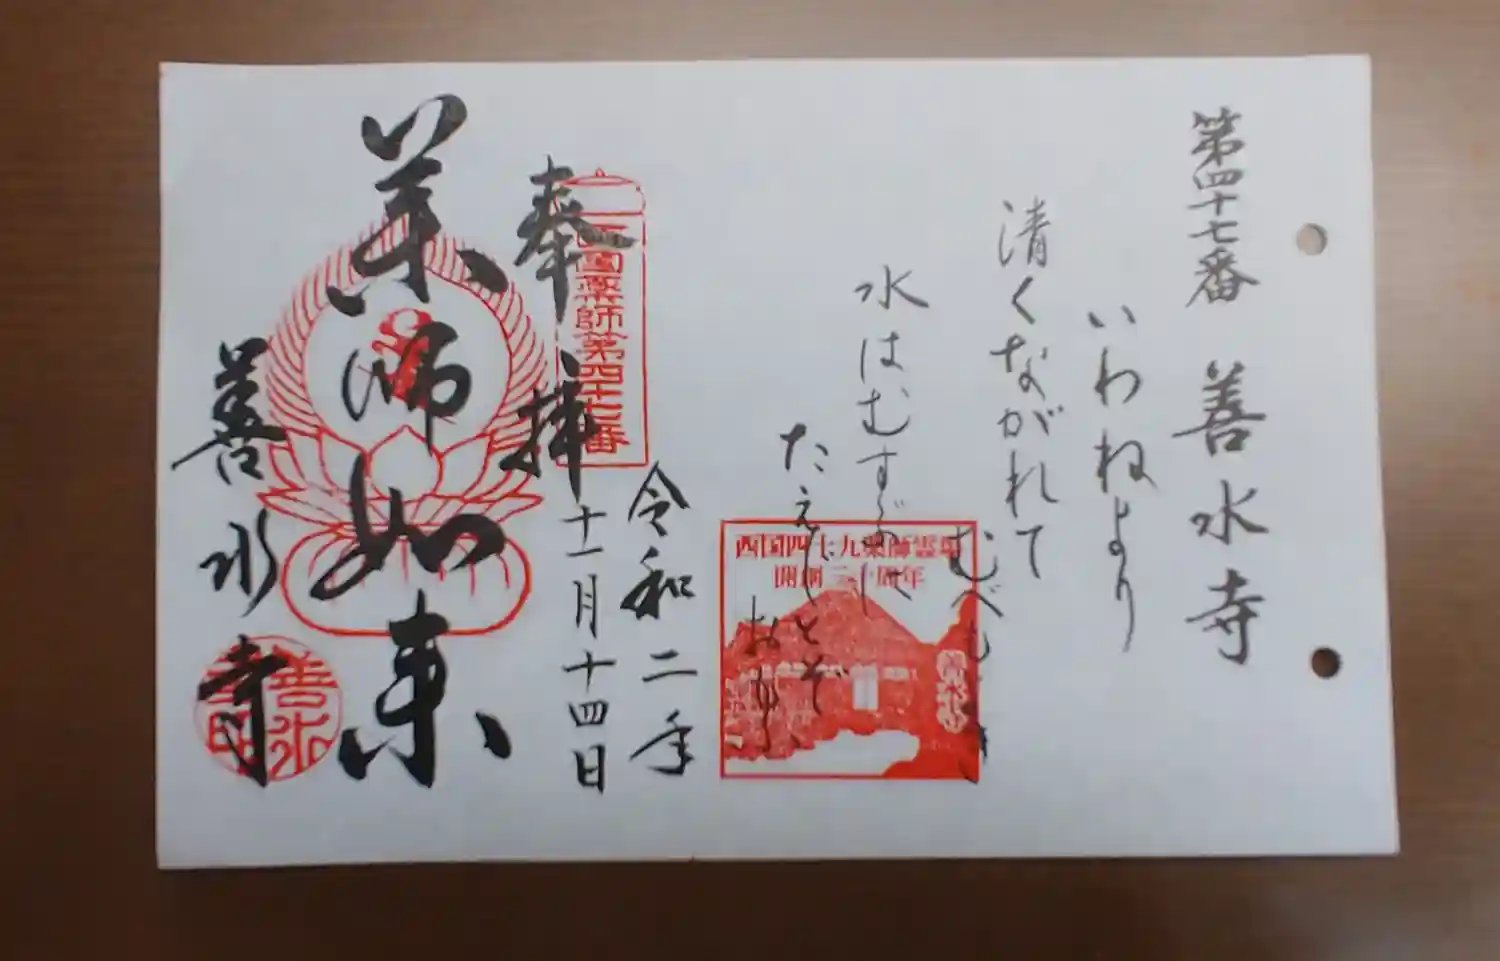 第四十七番 善水寺
いわねより
清くながれて
むべむ
水はむすぶ
たえじとぞ
おもふ
西国四十九薬師霊場
開創三十周年
善水寺
令和二年
十一月十四日
奉拝
西國薬師第四十七番
薬師如来
善水寺
善水